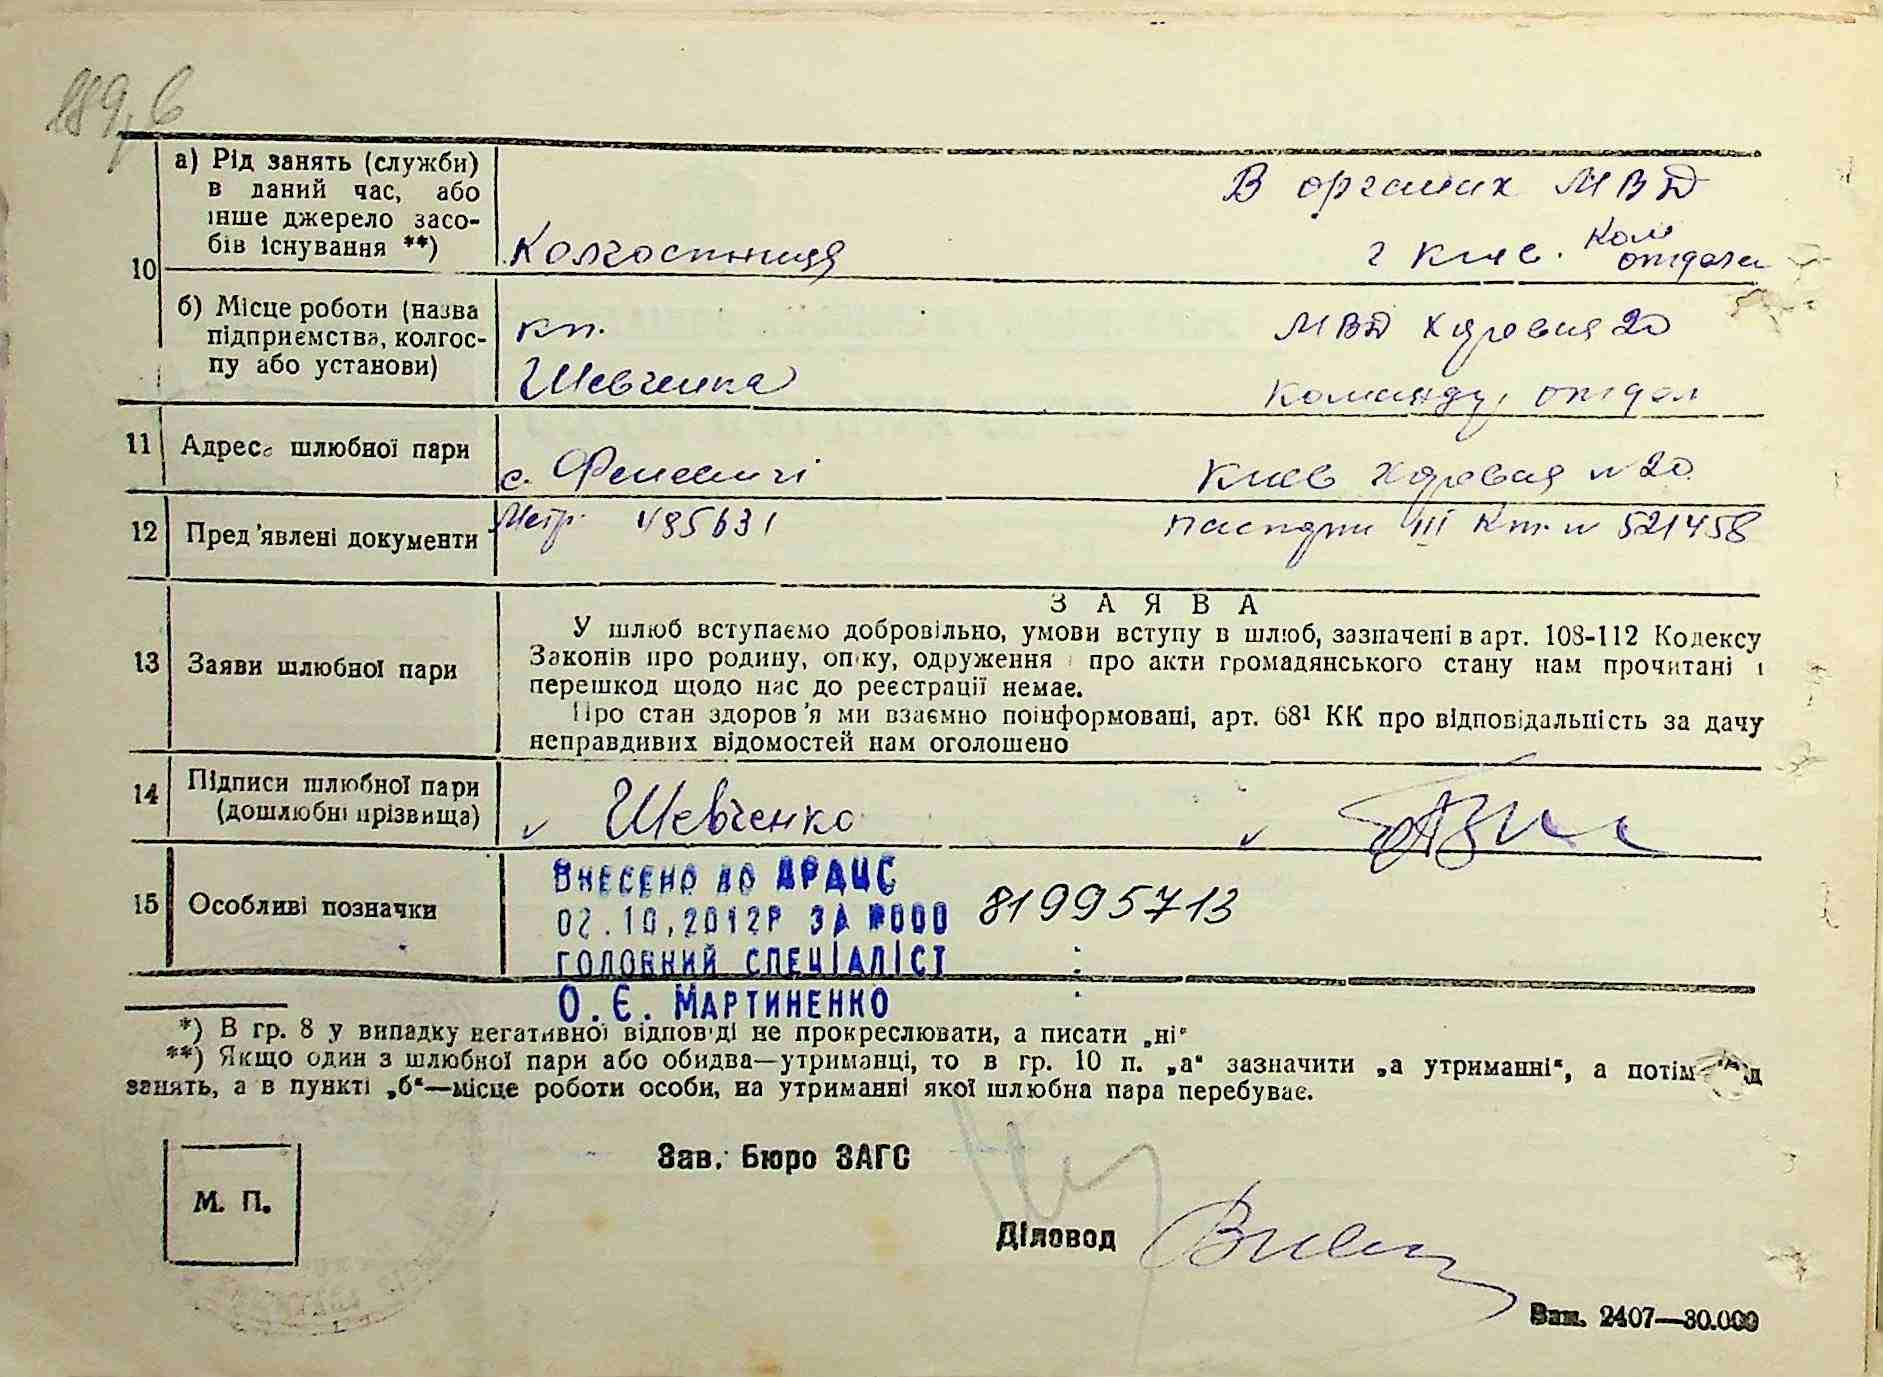 а) Рід занять (служби)
в даний час, або
інше джерело засо-
бів існування **)
10
Колгоспниця
В органах МВД
г Киев.
б) Місце роботи (назва
підприємства, колгос-
пу або установи)
кп.
Шевченка
МВД Хоревая 20
Команду, отдел
11
Адреса шлюбної пари
с.
Киев Хоревая № 20
12
Пред'явлені документи
Метр. 495631
паспорт III № 521458
13
Заяви шлюбної пари
ЗАЯВА
У шлюб вступаємо добровільно, умови вступу в шлюб, зазначені в арт. 108-112 Кодексу
Законів про родину, опіку, одруження і про акти громадянського стану нам прочитані і
перешкод щодо нас до реєстрації немає.
Про стан здоров'я ми взаємно поінформовані, арт. 68¹ КК про відповідальність за дачу
неправдивих відомостей нам оголошено
14
Підписи шлюбної пари
(дошлюбні прізвища)
v Шевченко
v
15
Особливі позначки
ВНЕСЕНО ДО ДРАЦС
02.10.2012Р ЗА №000 81995713
ГОЛОВНИЙ СПЕЦІАЛІСТ
О.Є. МАРТИНЕНКО
*) В гр. 8 у випадку негативної відповіді не прокреслювати, а писати „ні“
**) Якщо один з шлюбної пари або обидва—утриманці, то в гр. 10 п. „а“ зазначити „а утриманні“, а потім
занять, а в пункті „б“—місце роботи особи, на утриманні якої шлюбна пара перебуває.
М. П.
Зав. Бюро ЗАГС
Діловод
Зам. 2407—30.000